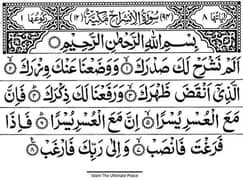 اٰيَاتُهَا ٨ (٩٤) سُوْرَةُ الْاِنْشِرَاحِ مَكِّيَّةٌ (١٢) رُكُوْعُهَا ١
بِسْمِ اللّٰهِ الرَّحْمٰنِ الرَّحِيْمِ
اَلَمْ نَشْرَحْ لَكَ صَدْرَكَ ۙ﴿١﴾ وَوَضَعْنَا عَنْكَ وِزْرَكَ ۙ﴿٢﴾
الَّذِيْٓ اَنْقَضَ ظَهْرَكَ ۙ﴿٣﴾ وَرَفَعْنَا لَكَ ذِكْرَكَ ؕ﴿٤﴾ فَاِنَّ
مَعَ الْعُسْرِ يُسْرًا ۙ﴿٥﴾ اِنَّ مَعَ الْعُسْرِ يُسْرًا ؕ﴿٦﴾ فَاِذَا
فَرَغْتَ فَانْصَبْ ۙ﴿٧﴾ وَاِلٰى رَبِّكَ فَارْغَبْ ﴿٨﴾
Islam The Ultimate Peace